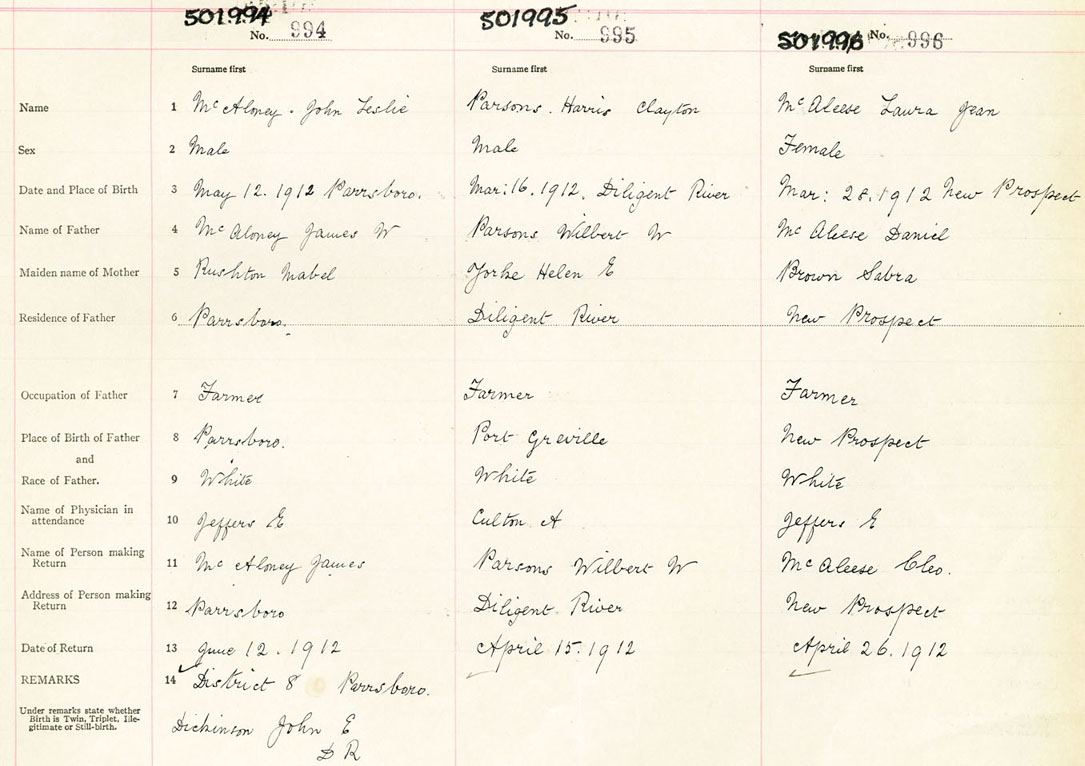 501994 501995 501996
No. 994 No. 995 No. 996
Surname first Surname first Surname first
Name 1 McAloney. John Leslie Parsons. Harris Clayton McAleese Laura Jean
Sex 2 Male Male Female
Date and Place of Birth 3 May 12. 1912 Parrsboro. Mar: 16. 1912. Diligent River Mar: 28. 1912 New Prospect
Name of Father 4 McAloney James W Parsons Wilbert W McAleese Daniel
Maiden name of Mother 5 Rushton Mabel Yorke Helen E Brown Sabra
Residence of Father 6 Parrsboro. Diligent River New Prospect
Occupation of Father 7 Farmer Farmer Farmer
Place of Birth of Father 8 Parrsboro. Port Greville New Prospect
and
Race of Father. 9 White White White
Name of Physician in
attendance 10 Jeffers E Culton A Jeffers E
Name of Person making
Return 11 McAloney James Parsons Wilbert W McAleese Cleo.
Address of Person making
Return 12 Parrsboro Diligent River New Prospect
Date of Return 13 June 12. 1912 April 15. 1912 April 26. 1912
REMARKS 14 District 8 Parrsboro.
Under remarks state whether
Birth is Twin, Triplet, Ille-
gitimate or Still-birth.
Dickinson John E
D R